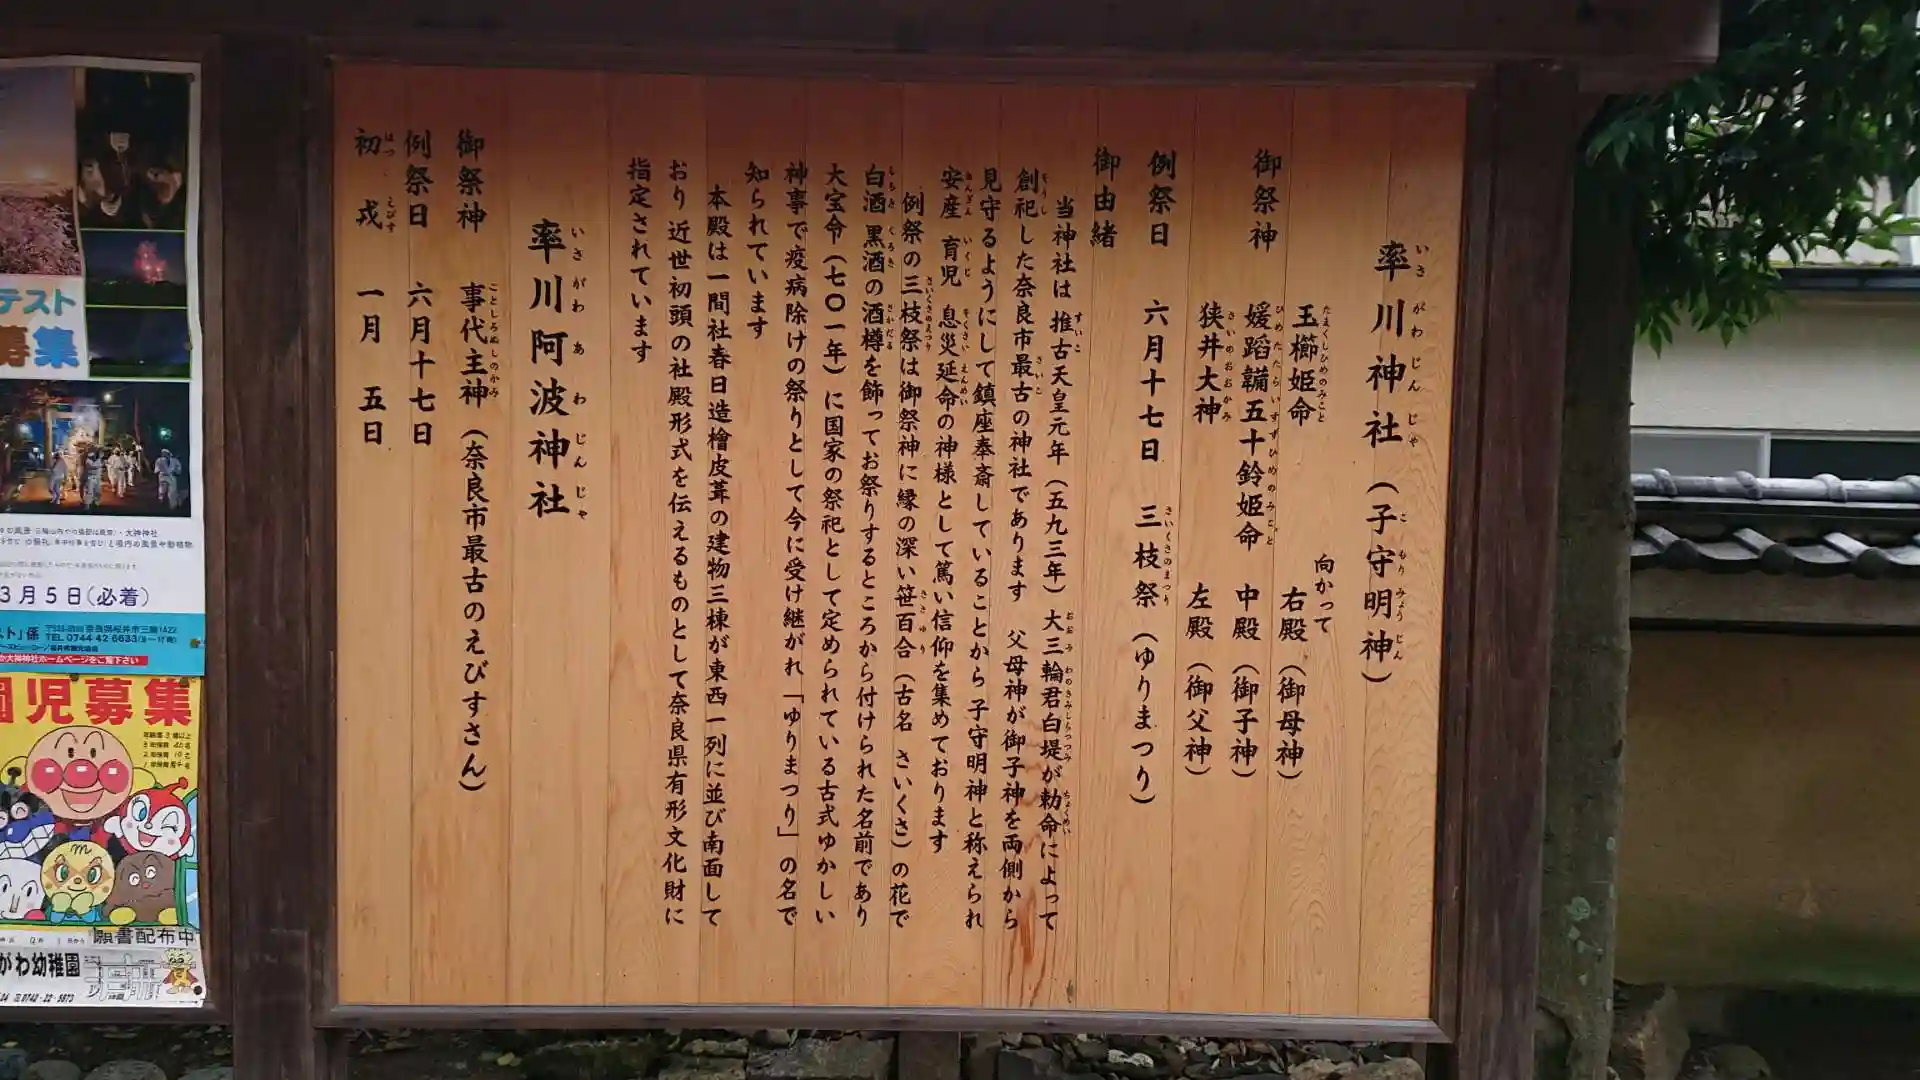 率川神社(子守明神)
いさがわじんじゃ こもりみょうじん
御祭神
玉櫛姫命 向かって右殿(御母神)
たまくしひめのみこと
媛蹈韛五十鈴姫命 中殿(御子神)
ひめたたらいすずひめのみこと
狭井大神 左殿(御父神)
さいのおおかみ
例祭日 六月十七日 三枝祭(ゆりまつり)
さいくさのまつり
御由緒
当神社は 推古天皇元年(五九三年)大三輪君白堤が勅命によって
創祀した奈良市最古の神社であります 父母神が御子神を両側から
見守るようにして鎮座奉斎していることから子守明神と称えられ
安産 育児 息災延命の神様として篤い信仰を集めております
例祭の三枝祭は御祭神に縁の深い笹百合(古名 さいくさ)の花で
白酒 黒酒の酒樽を飾ってお祭りするところから付けられた名前であり
大宝令(七〇一年)に国家の祭祀として定められている古式ゆかしい
神事で疫病除けの祭りとして今に受け継がれ「ゆりまつり」の名で
知られています
本殿は一間社春日造檜皮葺の建物三棟が東西一列に並び南面して
おり 近世初頭の社殿形式を伝えるものとして奈良県有形文化財に
指定されています
率川阿波神社
いさがわあわじんじゃ
御祭神 事代主神(奈良市最古のえびすさん)
ことしろぬしのかみ
例祭日 六月十七日
初戎 一月 五日
はつえびす
テスト
募集
3月5日(必着)
スト」係
TEL 0744 42 6633
大神神社ホームページをご覧下さい
園児募集
願書配布中
がわ幼稚園